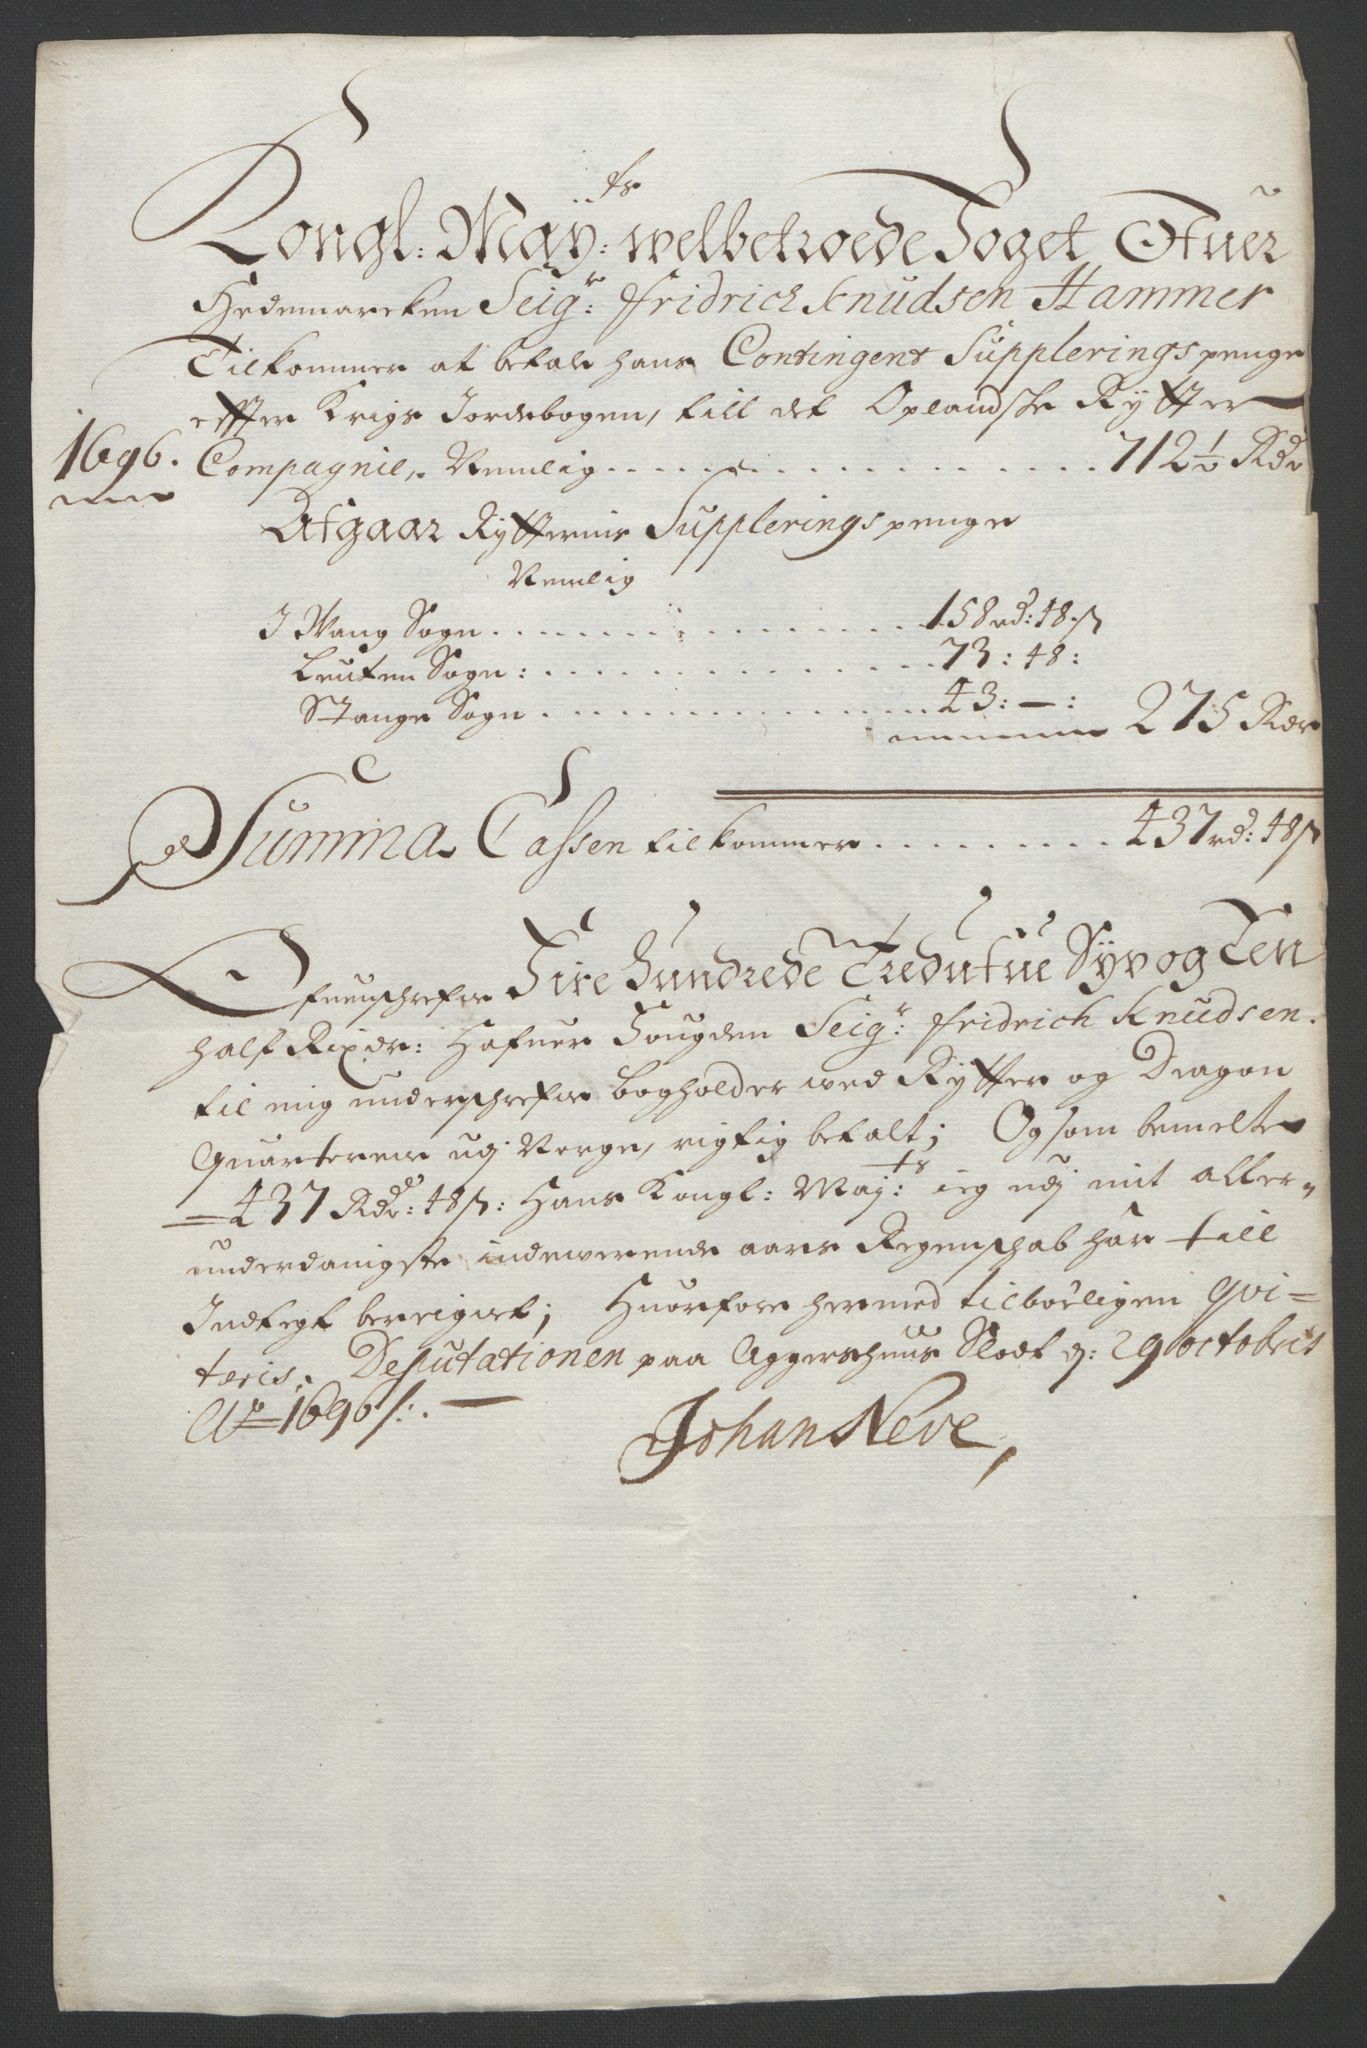 Kongl: May:ts welbetroede Foget Ofuer
Hedemarcken Seigr: Fridrich Knudsen Hammer
Tilkommer at betale hans Contingent Supplerings penge
effter Krigs Jordebogen, till det Oplandske Rytter
1696. Compagnie, Nemlig ... 712½ Rdr
Afgaar Rytternis Supplerings penge
Nemlig
I Wang Sogn ... 158 rd: 48 s
Leuten Sogn: ... 73: 48:
Stange Sogn ... 43: — : 275 Rdr
Summa Cassen tilkommer ... 437 rd: 48 s
Ofuenschrefne Fire Hundrede Tredutue Syv og Een
half Rixdr: Hafuer Fougden Seigr: Fridrich Knudsen
til mig underschrefne bogholder wed Rytter og Dragon
Quarterene udj Norge, rigtig betalt; Og som bemelte
= 437 Rdr: 48 s: Hans Kongl: Maj:ts ieg udj mit aller-
underdanigste indewerende aars Regenschab har till
Indtegt bereignet; Huorfore hermed tilbørligen qvi=
teris. Deputationen paa Aggershuus Slodt d: 29 octobris
Ao 1696 /: —
Johan Neve,